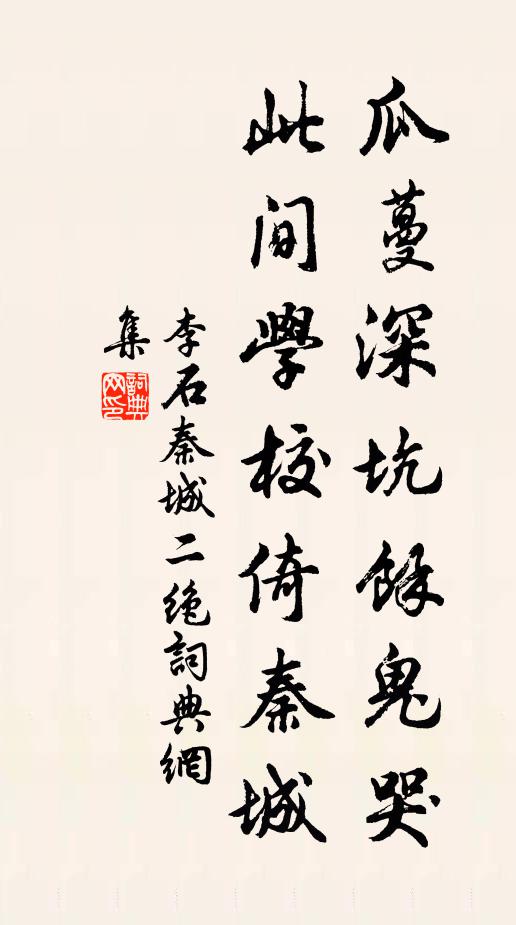 瓜蔓深坑餘鬼哭
此間學校倚秦城
李石秦城二絶詞典網
集
詞典網印